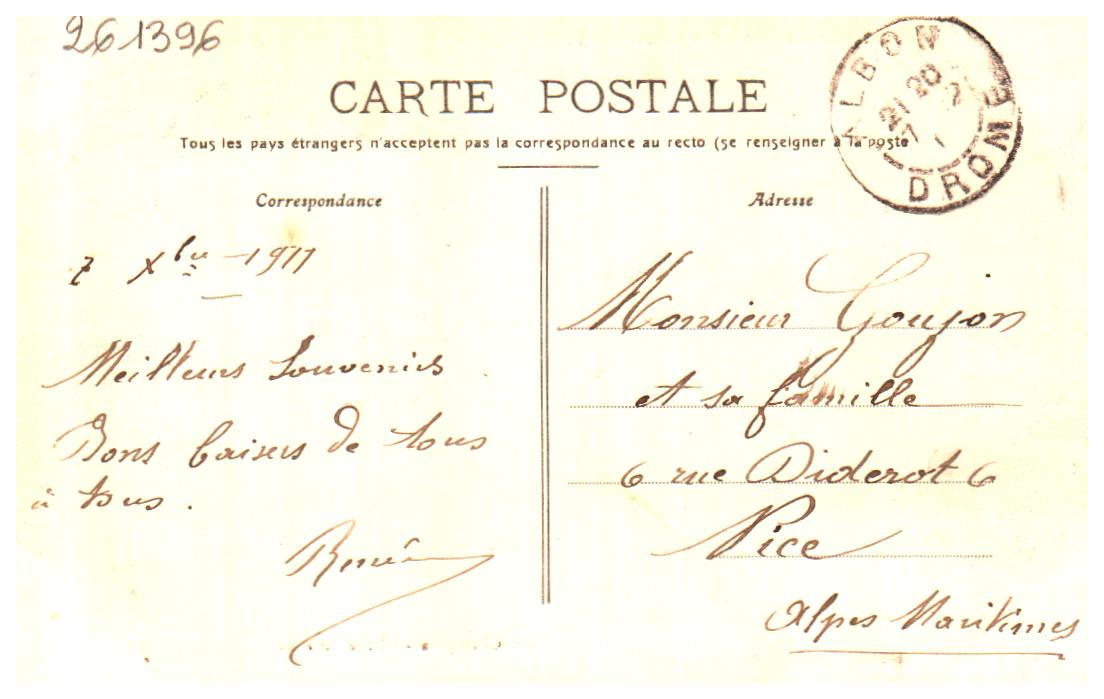 261396
CARTE POSTALE
Tous les pays étrangers n'acceptent pas la correspondance au recto (se renseigner à la poste
ALBON
DROME
Correspondance
7 Xbre - 1911
Meilleurs Souvenirs
Bons baisers de tous
à tous.
René
Adresse
Monsieur Goujon
et sa famille
6 rue Diderot 6
Nice
Alpes Maritimes